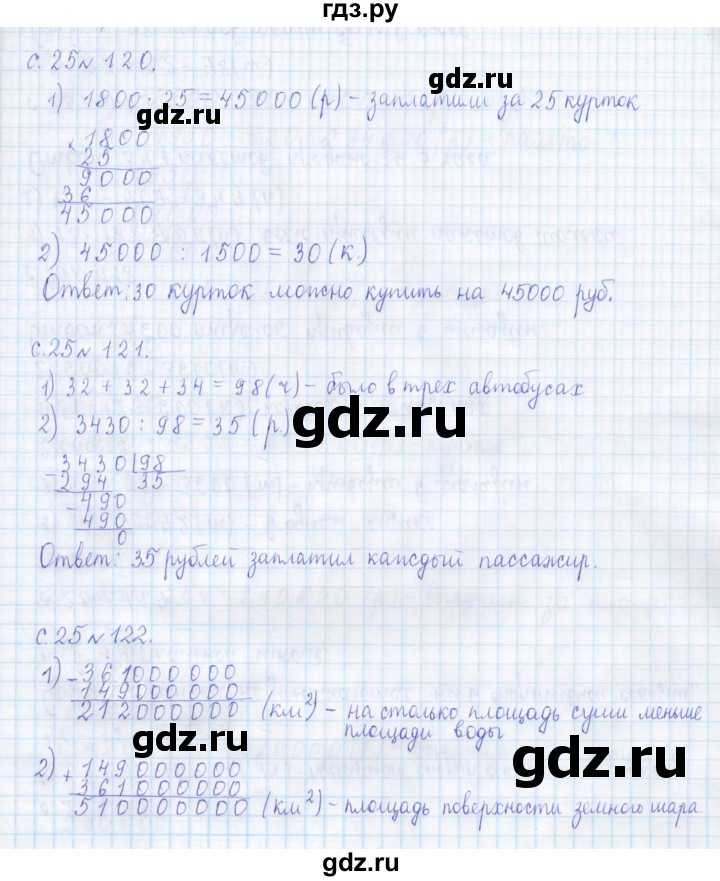 гдз.ру
с. 25 № 120.
1) 1800 · 25 = 45000 (р) - заплатили за 25 курток
gdz.ru
gdz.ru
× 1800
25
9000
36
45000
gdz.ru
2) 45000 : 1500 = 30 (к.)
Ответ: 30 курток можно купить на 45000 руб.
с. 25 № 121.
1) 32 + 32 + 34 = 98 (ч) - было в трех автобусах
2) 3430 : 98 = 35 (р)
gdz.ru
- 3430 98
294 35
- 490
490
0
Ответ: 35 рублей заплатил каждый пассажир.
с. 25 № 122.
1) - 361000000
149000000
212000000 (км²) - на столько площадь суши меньше
площади воды
gdz.ru
gdz.ru
2) + 149000000
361000000
510000000 (км²) - площадь поверхности земного шара
gdz.ru